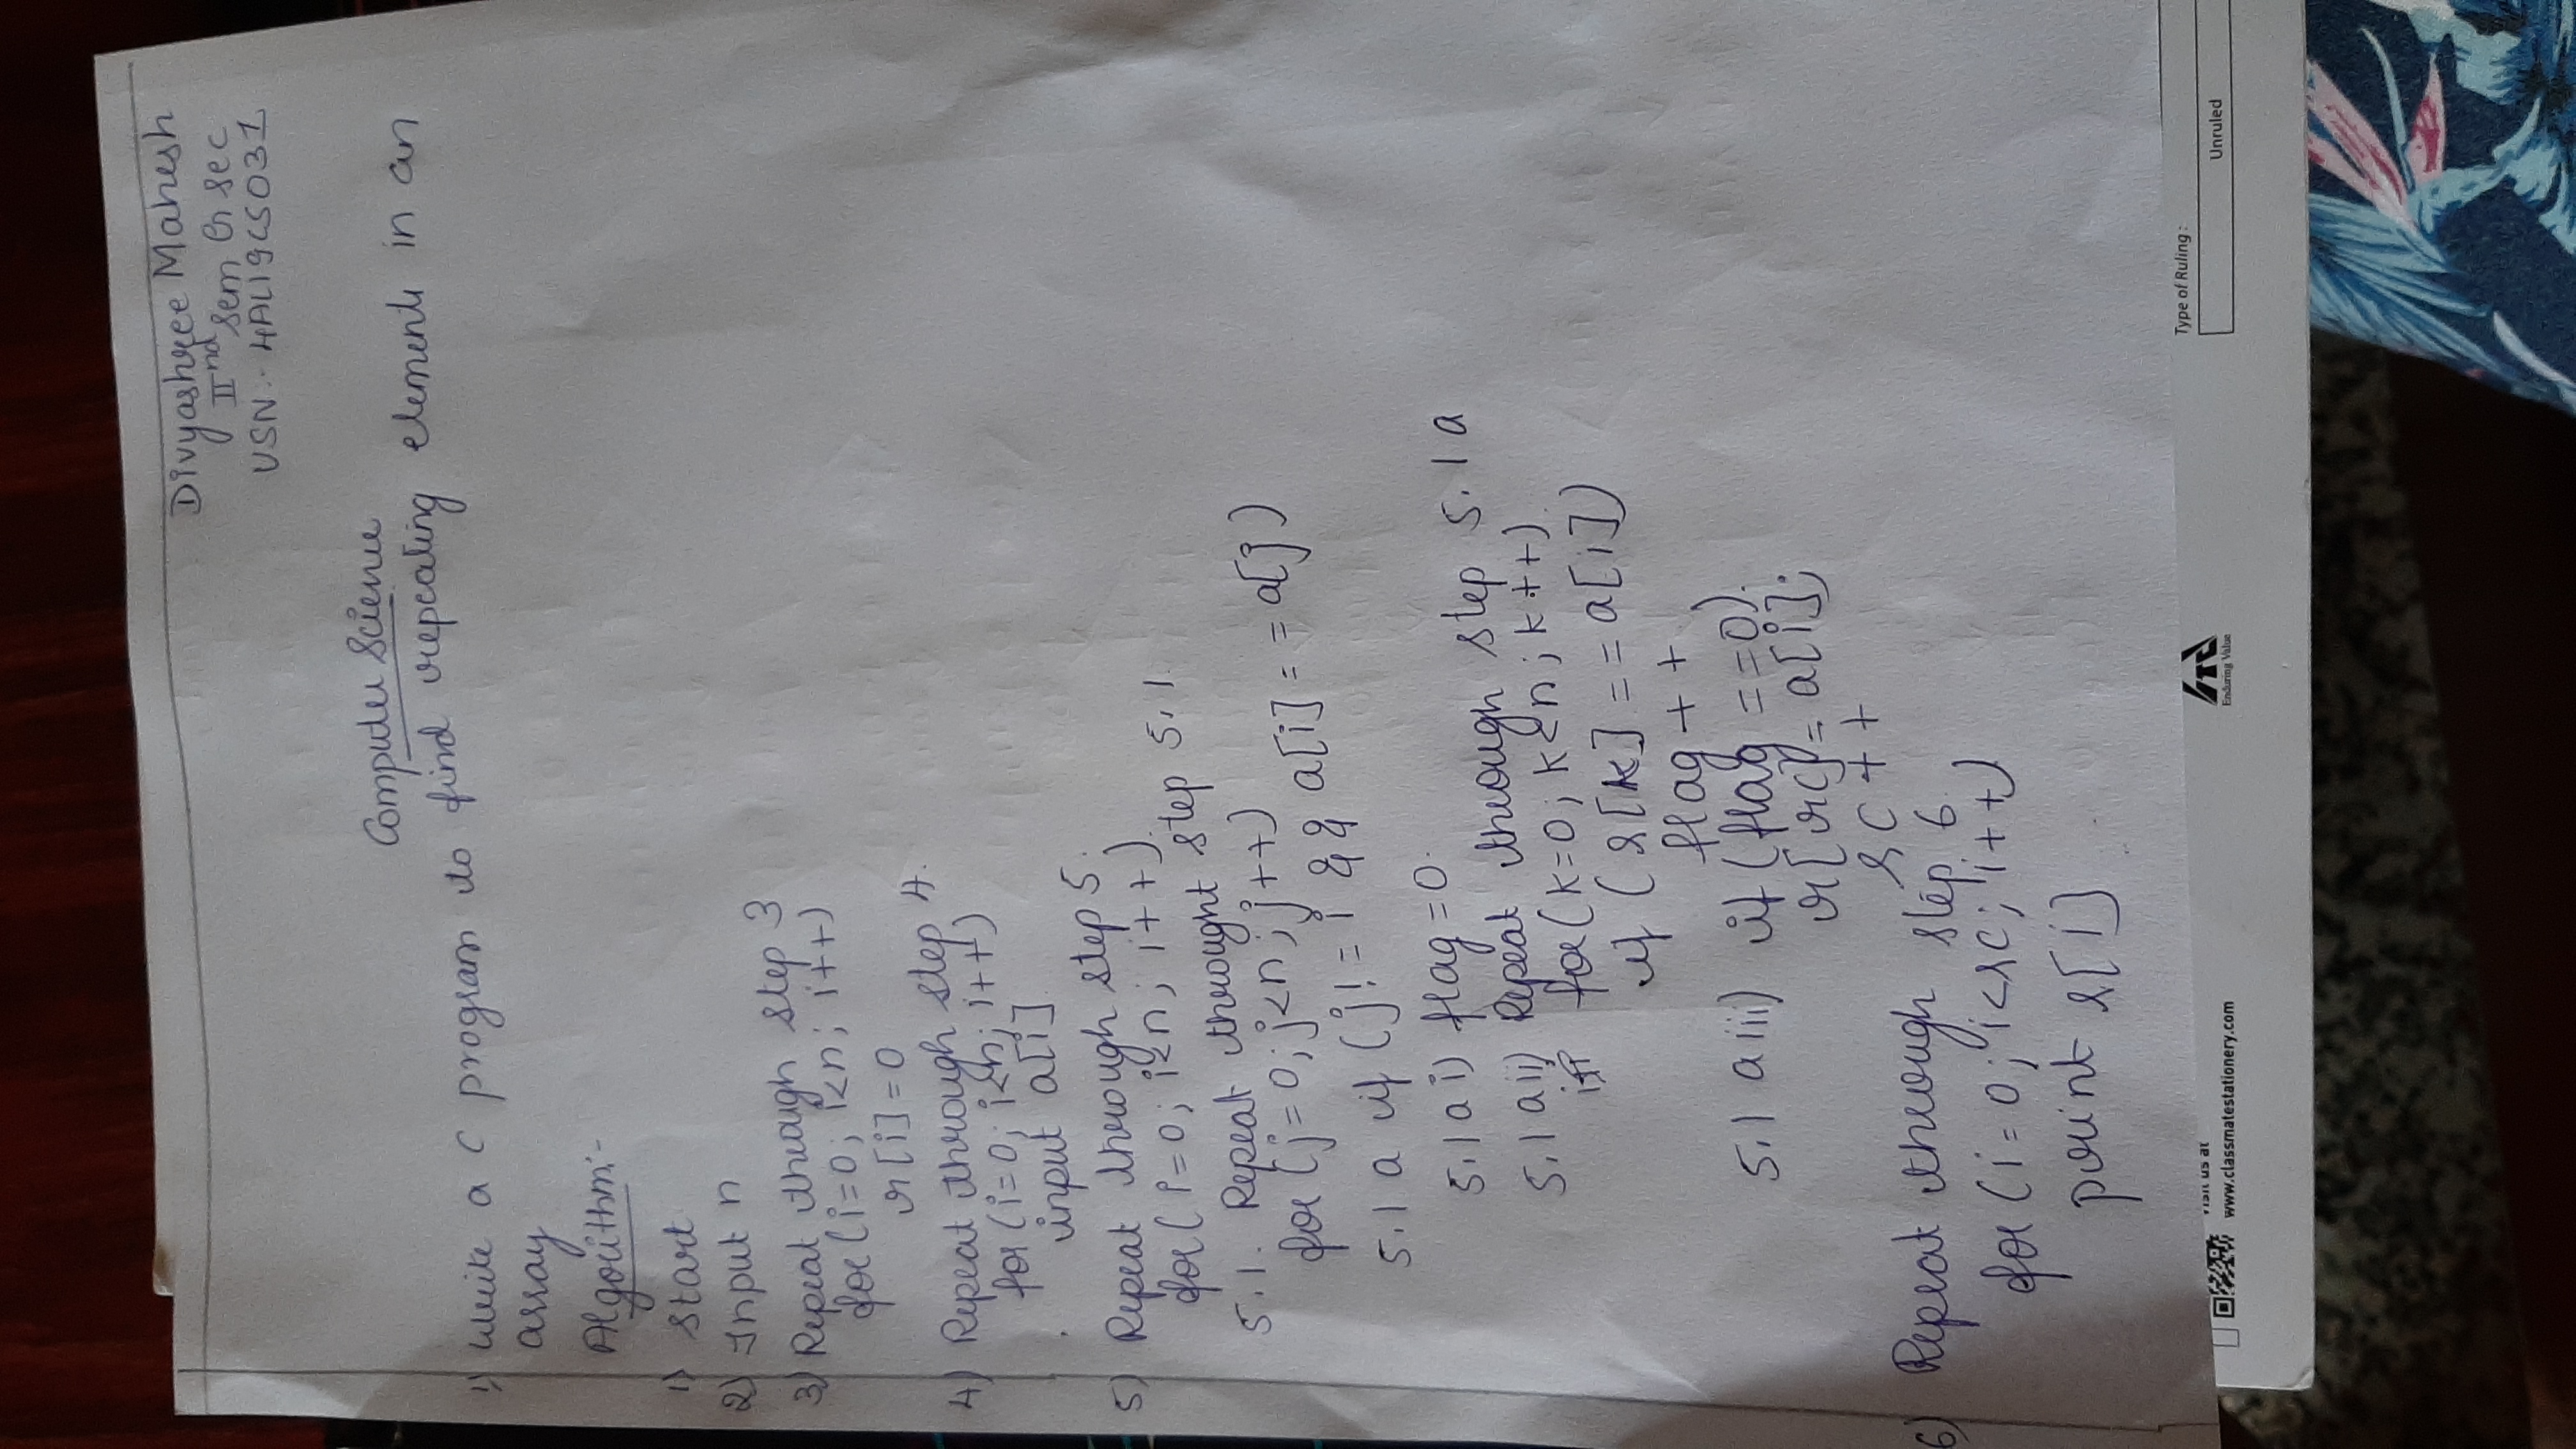 Divyashree Mahesh
IInd Sem Sec
USN:- 4AL19CS031
Computer Science
1) Write a C program to find repeating elements in an
array
Algorithm:-
1) Start
2) Input n
3) Repeat through step 3
for (i=0; i<n; i++)
r[i]=0
4) Repeat through step 4.
for (i=0; i<n; i++)
input a[i]
5) Repeat through step 5.
for (i=0; i<n; i++)
5.1. Repeat throught step 5.1
for (j=0; j<n; j++)
5.1 a if (j!=i && a[i]==a[j)
5.1 a i) flag=0.
5.1 a ii) Repeat through step 5.1 a
for (k=0; k<n; k++)
if (r[k]==a[i])
flag++
5.1 a iii) if (flag ==0)
r[rc]=a[i];
rc++
6) Repeat through step 6
for (i=0; i<rc; i++)
print r[i]
Visit us at
www.classmatestationery.com
ITC
Enduring Value
Type of Ruling :
Unruled